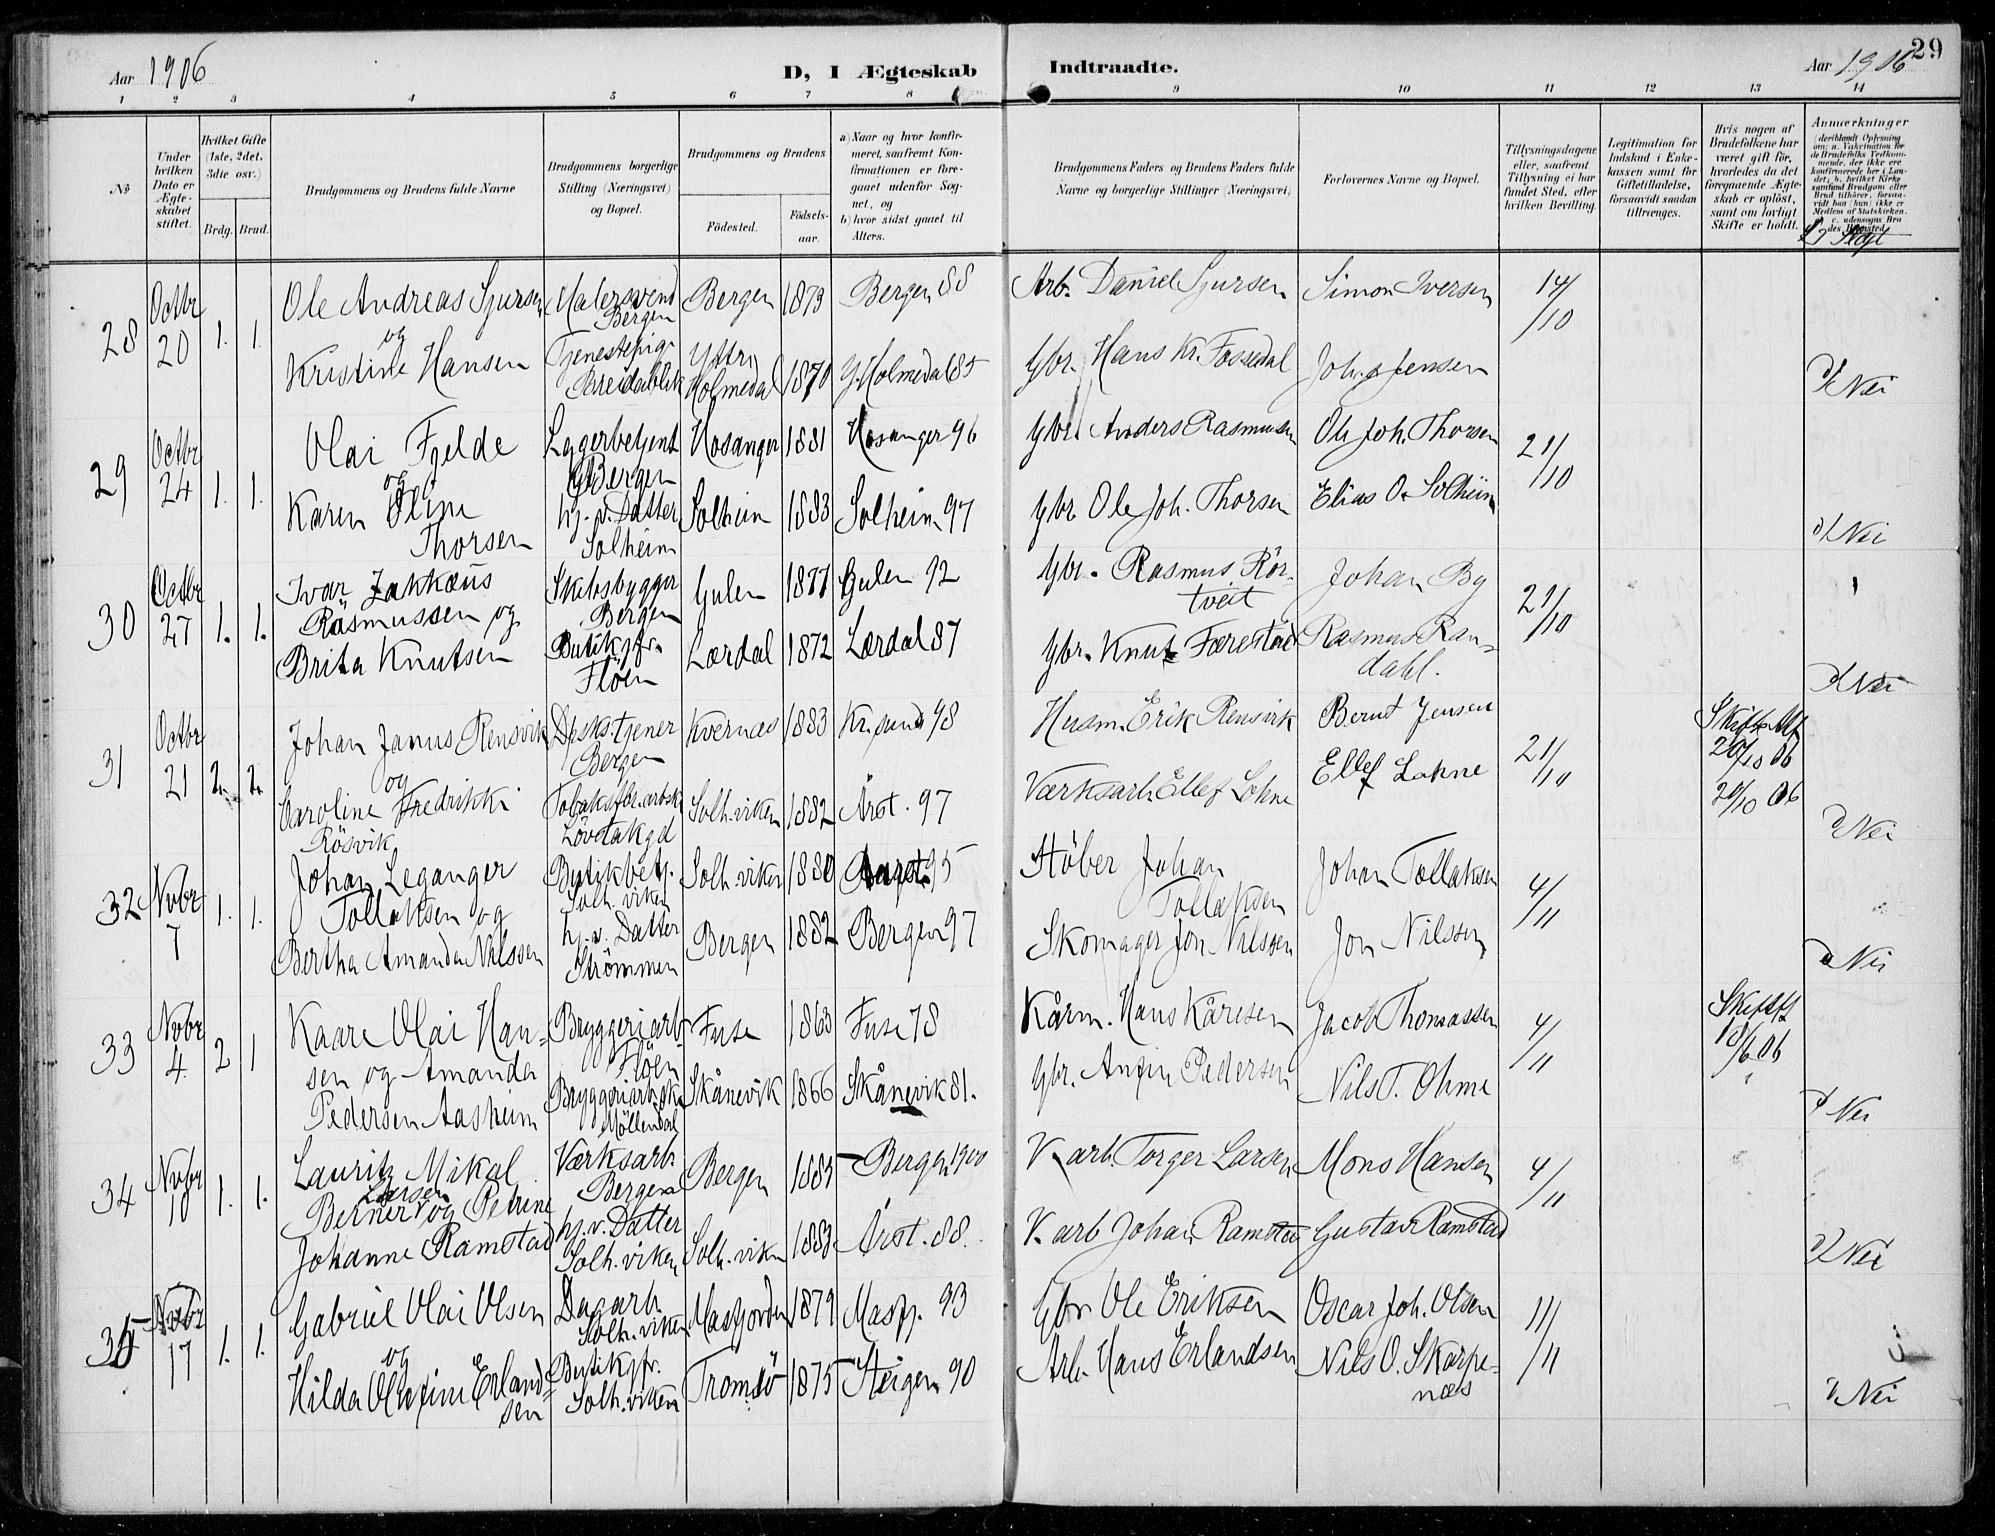 Aar 1906
D, I Ægteskab Indtraadte.
Aar 1906
29
1 2 3 4 5 6 7 8 9 10 11 12 13 14
No
Under hvilken Dato er Ægteskabet stiftet.
Hvilket Gifte (1ste, 2det, 3die osv.)
Brdg. Brud.
Brudgommens og Brudens fulde Navne
Brudgommens borgerlige Stilling (Næringsvei) og Bopæl.
Brudgommens og Brudens
Födested.
Födselsaar.
a) Naar og hvor konfirmeret, saafremt Konfirmationen er foregaaet udenfor Sognet, og
b) hvor sidst gaaet til Alters.
Brudgommens Faders og Brudens Faders fulde Navne og borgerlige Stillinger (Næringsvei)
Forlovernes Navne og Bopæl.
Tillysningsdagene eller, saafremt Tillysning ei har fundet Sted, efter hvilken Bevilling
Legitimation for Indskud i Enkekassen samt for Giftetilladelse, forsaavidt saadan tiltrænges.
Hvis nogen af Brudefolkene har været gift för, hvorledes da det foregaaende Ægteskab er oplöst, samt om lovligt Skifte er holdt.
Anmærkninger
28 Octbr 20 1. 1.
Ole Andreas Sjursen Malersvend Bergen Bergen 1873 Bergen 88 Arb. Daniel Sjursen Simon Iversen 14/10
og
Kristine Hansen Tjenestepige Breidablik Yttre Holmedal 1870 Y. Holmedal 85 Gbr. Hans Kr. Fossedal Joh. Jensen Nei
29 Octbr 24 1. 1.
Olai Fjelde Lagerbetjent Bergen Hosanger 1881 Hosanger 96 Gbr. Anders Rasmussen Ole Joh. Thorsen 21/10
og
Karen Oline Thorsen hj. v. Datter Solheim Solheim 1883 Solheim 97 Gbr. Ole Joh. Thorsen Elias O. Solheim Nei
30 Octbr 27 1. 1.
Ivar Zakkæus Rasmussen og Skibsbygger Bergen Gulen 1877 Gulen 92 Gbr. Rasmus Rörtveit Johan By 21/10
Brita Knutsen Butikjfr. Flöen Lærdal 1872 Lærdal 87 Gbr. Knut Færestad Rasmus Randahl. Nei
31 Octbr 21 2. 2.
Johan Janus Rensvik Bergen Kvernæs 1883 Kr. sund 98 Husm. Erik Rensvik Bernt Jensen 21/10 20/10 06
og
Caroline Fredrikke Rösvik Tobaksfbr. arbsk. Lövstakgd Solh. viken 1882 Årst. 97 Værksarb. Ellef Lohne Ellef Lohne 20/10 06 Nei
32 Novbr 7 1. 1.
Johan Leganger Tollaksen og Butikbetj. Solh. viken Solh. viken 1880 Aarst. 95 Stöber Johan Tollaksen Johan Tollaksen 4/11
Bertha Amanda Nilssen hj. v. Datter Strömmen Bergen 1882 Bergen 97 Skomager Jon Nilssen Jon Nilssen Nei
33 Novbr 4 2 1
Kaare Olai Hansen og Bryggeriarb. Flöen Fuse 1863 Fuse 78 Kårm. Hans Kåresen Jacob Thomassen 4/11
Amanda Pedersen Aasheim Bryggeriarbsk. Möllendal Skånevik 1866 Skånevik 81. Gbr. Pedersen Nils T. Ohme Nei
34 Novbr 10 1. 1.
Lauritz Mikal Berner Larsen og Værksarb. Bergen Bergen 1885 Bergen 1900 V. arb. Torger Larsen Mons Hansen 4/11
Petrine Johanne Ramstad hj. v. Datter Solh. viken Solh. viken Årst. 88. V. arb Johan Ramstad Gustav Ramstad Nei
35 Novbr 17 1. 1.
Gabriel Olai Olsen Dagarb. Solh. viken Masfjorden 1879 Masfj. 93 Gbr Ole Eriksen Oscar Joh. Olsen 11/11
og
Hilda Erlandsen Butikjfr. Solh. viken Tromsö 1875 Steigen 90 Arb. Hans Erlandsen Nils O. Skarpenæs Nei